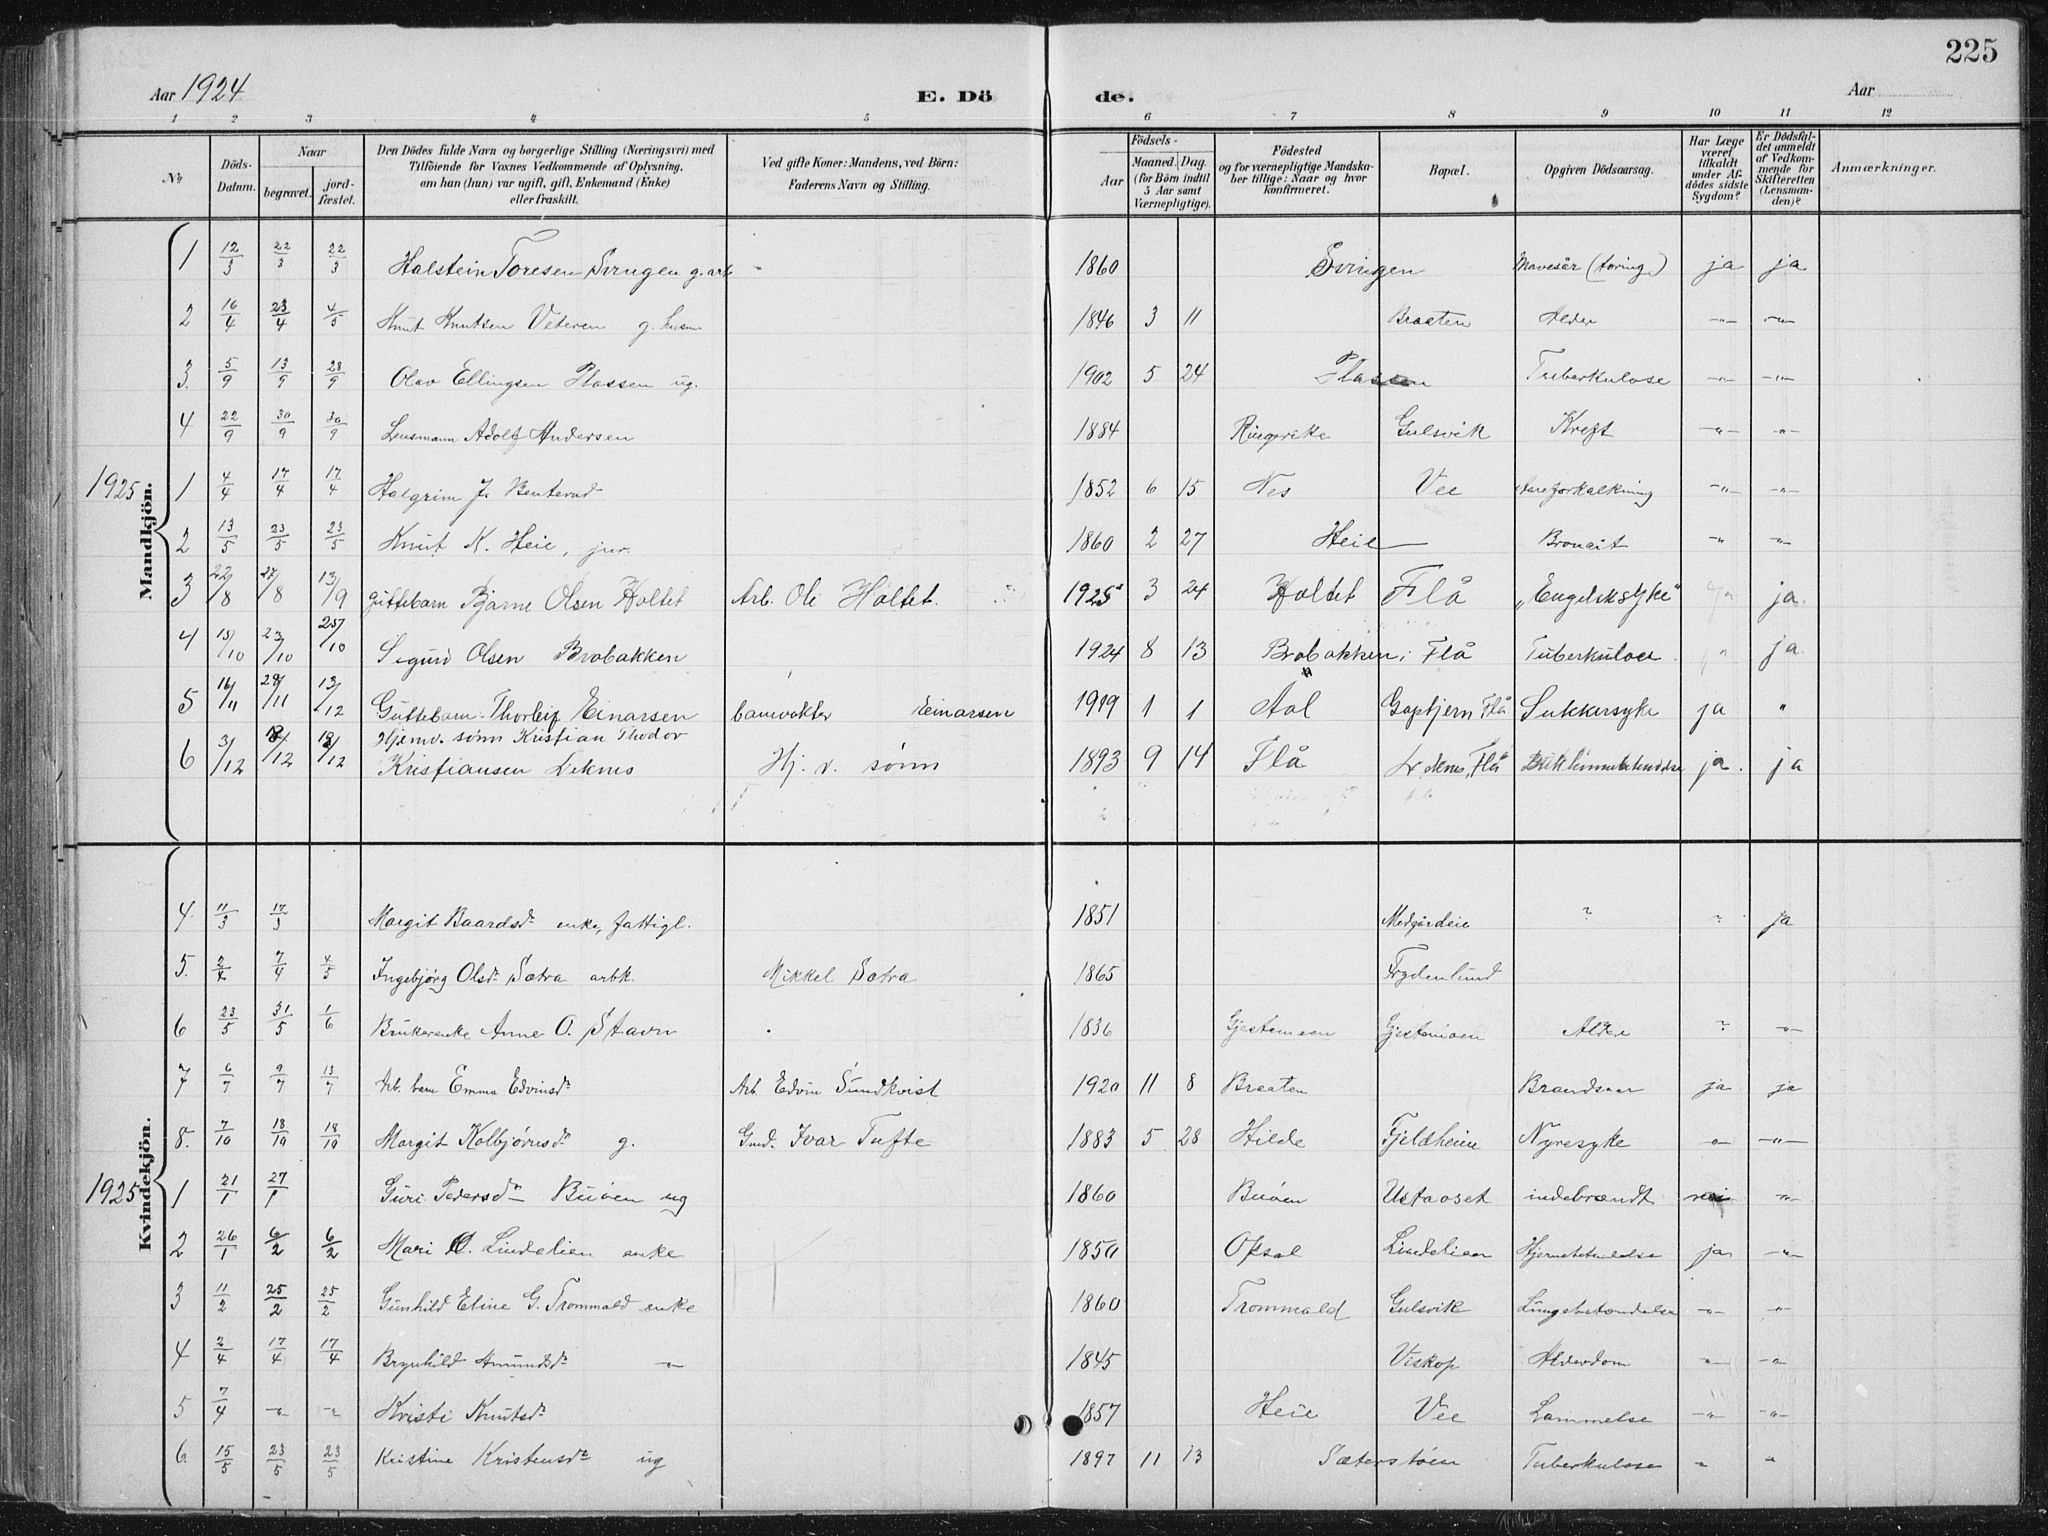 225
Aar 1924 E. Dö de. Aar
1 2 3 4 5 6 7 8 9 10 11 12
№
Döds-Datum.
Naar
begravet.
jord-fæstet.
Den Dödes fulde Navn og borgerlige Stilling (Næringsvei) med
Tilföiende for Voxnes Vedkommende af Oplysning,
om han (hun) var ugift, gift, Enkemand (Enke)
eller fraskilt.
Ved gifte Koner: Mandens, ved Börn:
Faderens Navn og Stilling.
Födsels-
Aar
Maaned. Dag.
(for Börn indtil
5 Aar samt
Værnepligtige).
Födested
og for værnepligtige Mandska-
ber tillige: Naar og hvor
konfirmeret.
Bopæl.
Opgiven Dödsaarsag.
Har Læge
været
tilkaldt
under Af-
dödes sidste
Sygdom?
Er Dödsfal-
det anmeldt
af Vedkom-
mende for
Skifteretten
(Lensman-
den)?
Anmærkninger.
Mandkjön.
1 12/3 22/3 22/3 Halstein Toresen Svingen g. arb 1860 Svingen Mavesår (tæring) ja ja
2 16/4 23/4 4/5 Knut Knutsen Veteren g. husm 1846 3 11 Braaten Alder -"- -"-
3. 5/9 13/9 28/9 Olav Ellingsen Plassen ug. 1902 5 24 Plassen Tuberkulose -"- -"-
4 22/9 30/9 30/9 Lensmann Adolf Andersen 1884 Ringerike Gulsvik Kreft -"- -"-
1925 1 4/4 17/4 17/4 Halgrim J. Benterud 1852 6 15 Nes Vee Aareforkalkning -"- -"-
2 13/5 23/5 23/5 Knut K. Heie, jur. 1860 2 27 Heie Broncit " -"-
3 22/8 27/8 13/9 Guttebarn Bjarne Olsen Holtet Arb. Ole Holtet. 1925 3 24 Holtet Flå „Engelsksyke" ja ja.
4 15/10 23/10 25/10 Sigurd Olsen Brobakken 1924 8 13 Brobakken i Flå Tuberkulose ja
5 16/11 28/11 13/12 Guttebarn Thorleif Einarsen banevokter Einarsen 1919 1 1 Aal Gaptjern Flå Sukkersyke ja "
6 3/12 12/12 Hjemv. sønn Kristian Thodor
Kristiansen Deknes Hj. v. sønn 1893 9 14 Flå Flå Bukhinnebetendelse ja. ja
Kvindekjön.
4 11/3 17/3 Margit Baardsdr enke, fattigl. 1851 Medgårdeie ? ? ja
5. 2/4 7/4 4/5 Ingebjørg Olsdr Sætra arbk. Mikkel Sætra 1865 Frydenlund
6 23/5 31/5 1/6 Brukerenke Anne O. Stavn 1836 Gjestemoen Gjestemoen Alder ? -"-
7 6/7 9/7 13/7 Arb. barn Emma Edvinsdr Arb. Edvin Sundkvist 1920 11 8 Braaten Brandsaar ja ja
8. 7/10 18/10 18/10 Margit Kolbjørnsdr g. Gmd. Ivar Tufte 1883 5 28 Hilde Fjeldheim Nyresyke -"- -"-
1925 1 21/1 27/1 Guri Pedersdr Buøen ug 1860 Buøen Ustaoset indebrændt nei -"-
2 26/1 6/2 6/2 Mari O. Lindelien enke 1850 Opsal Lindelien Hjernebetendelse ja -"-
3 11/2 25/2 25/2 Gunhild Eline G. Trommald enke 1860 Trommald Gulsvik Lungebetændelse -"- -"-
4 2/4 17/4 17/4 Brynhild Amundsdr -"- 1845 Viskop Alderdom -"- -"-
5 7/4 -"- -"- Kristi Knutsdr 1857 Heie Vee Lammelse -"- -"-
6 15/5 23/5 23/5 Kristine Kristensdr ug 1897 11 13 Sæterstøen Tuberkulose " "